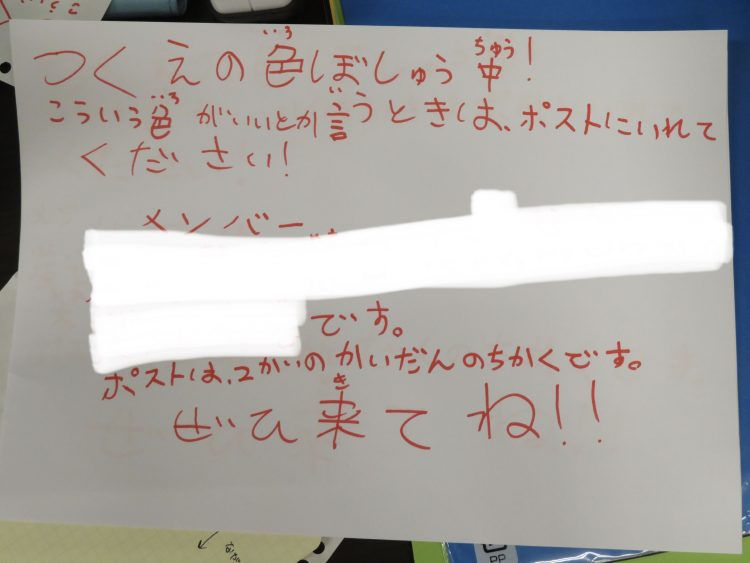 つくえの色ぼしゅう中!
こういう色がいいとか言うときは、ポストにいれて
ください!
メンバー
です。
ポストは、2かいのかいだんのちかくです。
ぜひ来てね!!
PP